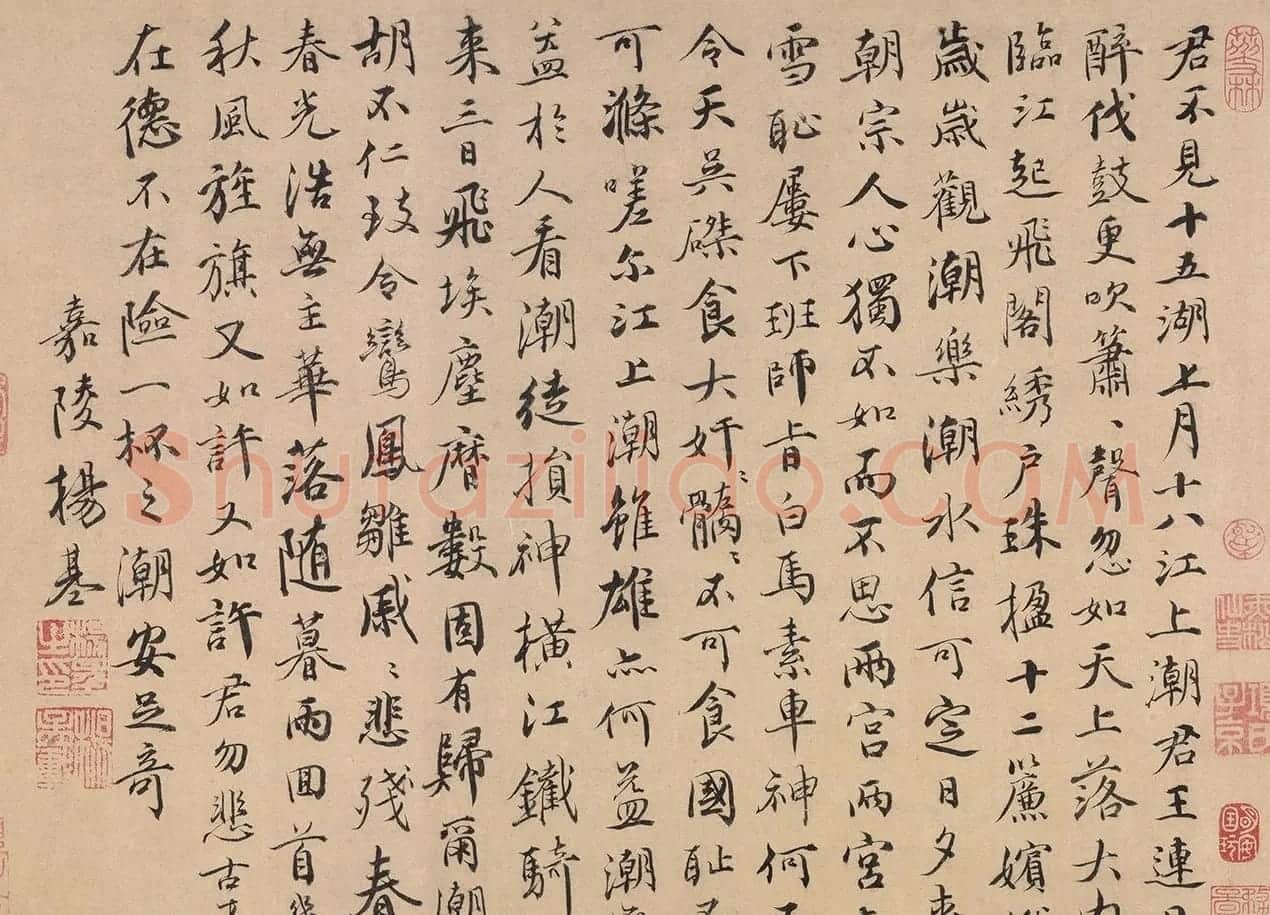 君不見十五湖上月十八江上潮君王連
醉伐鼓更吹簫、聲忽如天上落大
臨江起飛閣綉户珠楹十二簾嬪
歲歲觀潮樂潮水信可定日夕来
朝宗人心獨不如而不思兩宮兩宮
雪恥屢下班師旨白馬素車神何
令天吳磔食大奸〻髑〻不可食國恥
可滌嗟尔江上潮雖雄亦何益潮
益於人看潮徒損神横江鐵騎
来三日飛埃塵曆數固有歸爾潮
胡不仁致令鸞鳳雛戚〻悲殘春
春光浩無主華落随暮雨回首
秋風旌旗又如許又如許君勿悲古
在德不在險一杯之潮安足奇
嘉陵楊基
Shufaziliao.COM